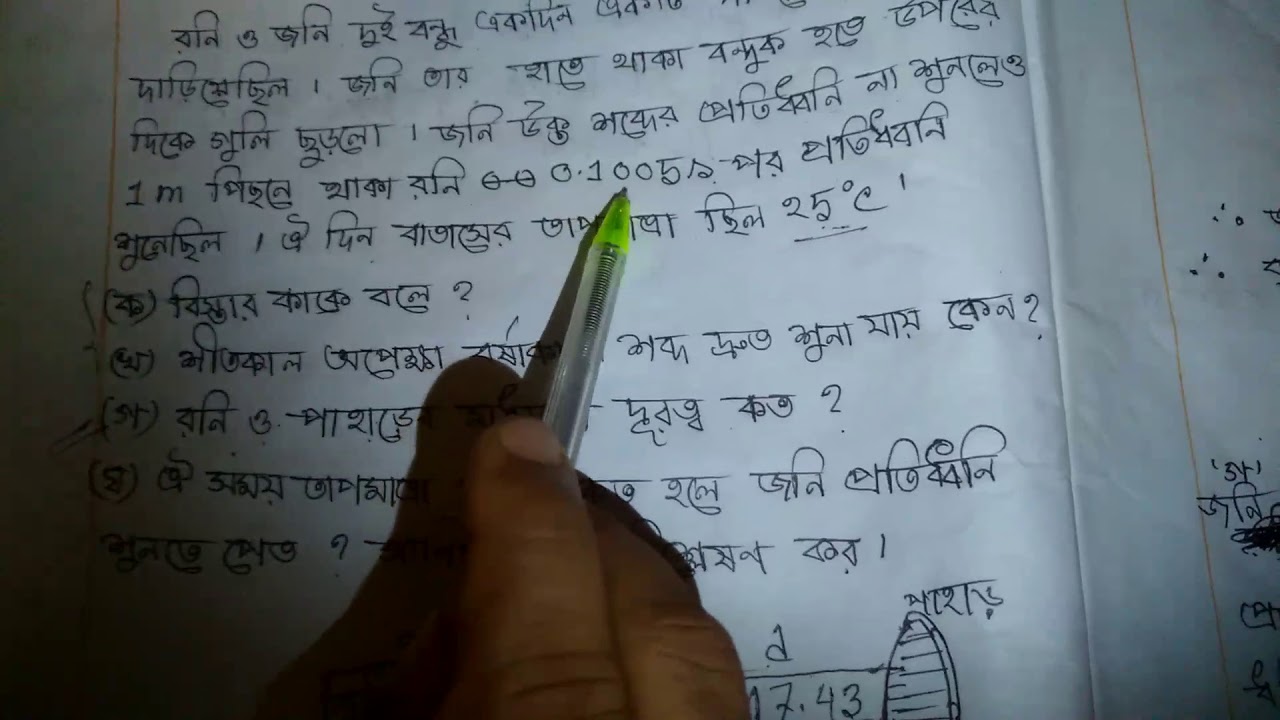 রনি ও জনি দুই বন্ধু একদিন
দাড়িয়েছিল । জনি তার হাতে থাকা বন্দুক হতে উপরের
দিকে গুলি ছুড়লো । জনি উক্ত শব্দের প্রতিধ্বনি না শুনলেও
1 m পিছনে থাকা রনি 0.1005 s পর প্রতিধ্বনি
শুনেছিল । ঐ দিন বাতাসের ছিল ২5°C ।
(ক) বিস্তার কাকে বলে ?
(খ) শীতকাল অপেক্ষা শব্দ দ্রুত শুনা যায় কেন ?
(গ) রনি ও পাহাড়ের দূরত্ব কত ?
(ঘ) ঐ সময় তাপমাত্রা হলে জনি প্রতিধ্বনি
শুনতে পেত ? কর ।
পাহাড়
d
17.43
∴
∴
'গ'
জনি